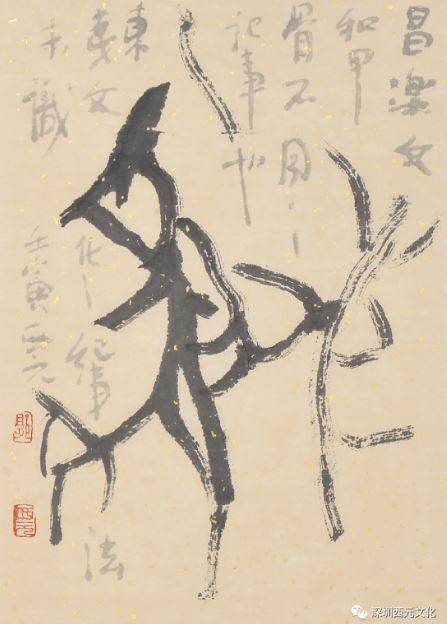 昌樂文
和甲
骨不同
記事也
東夷文
化之紀事法
未識
壬寅西元
西元
深圳西元文化